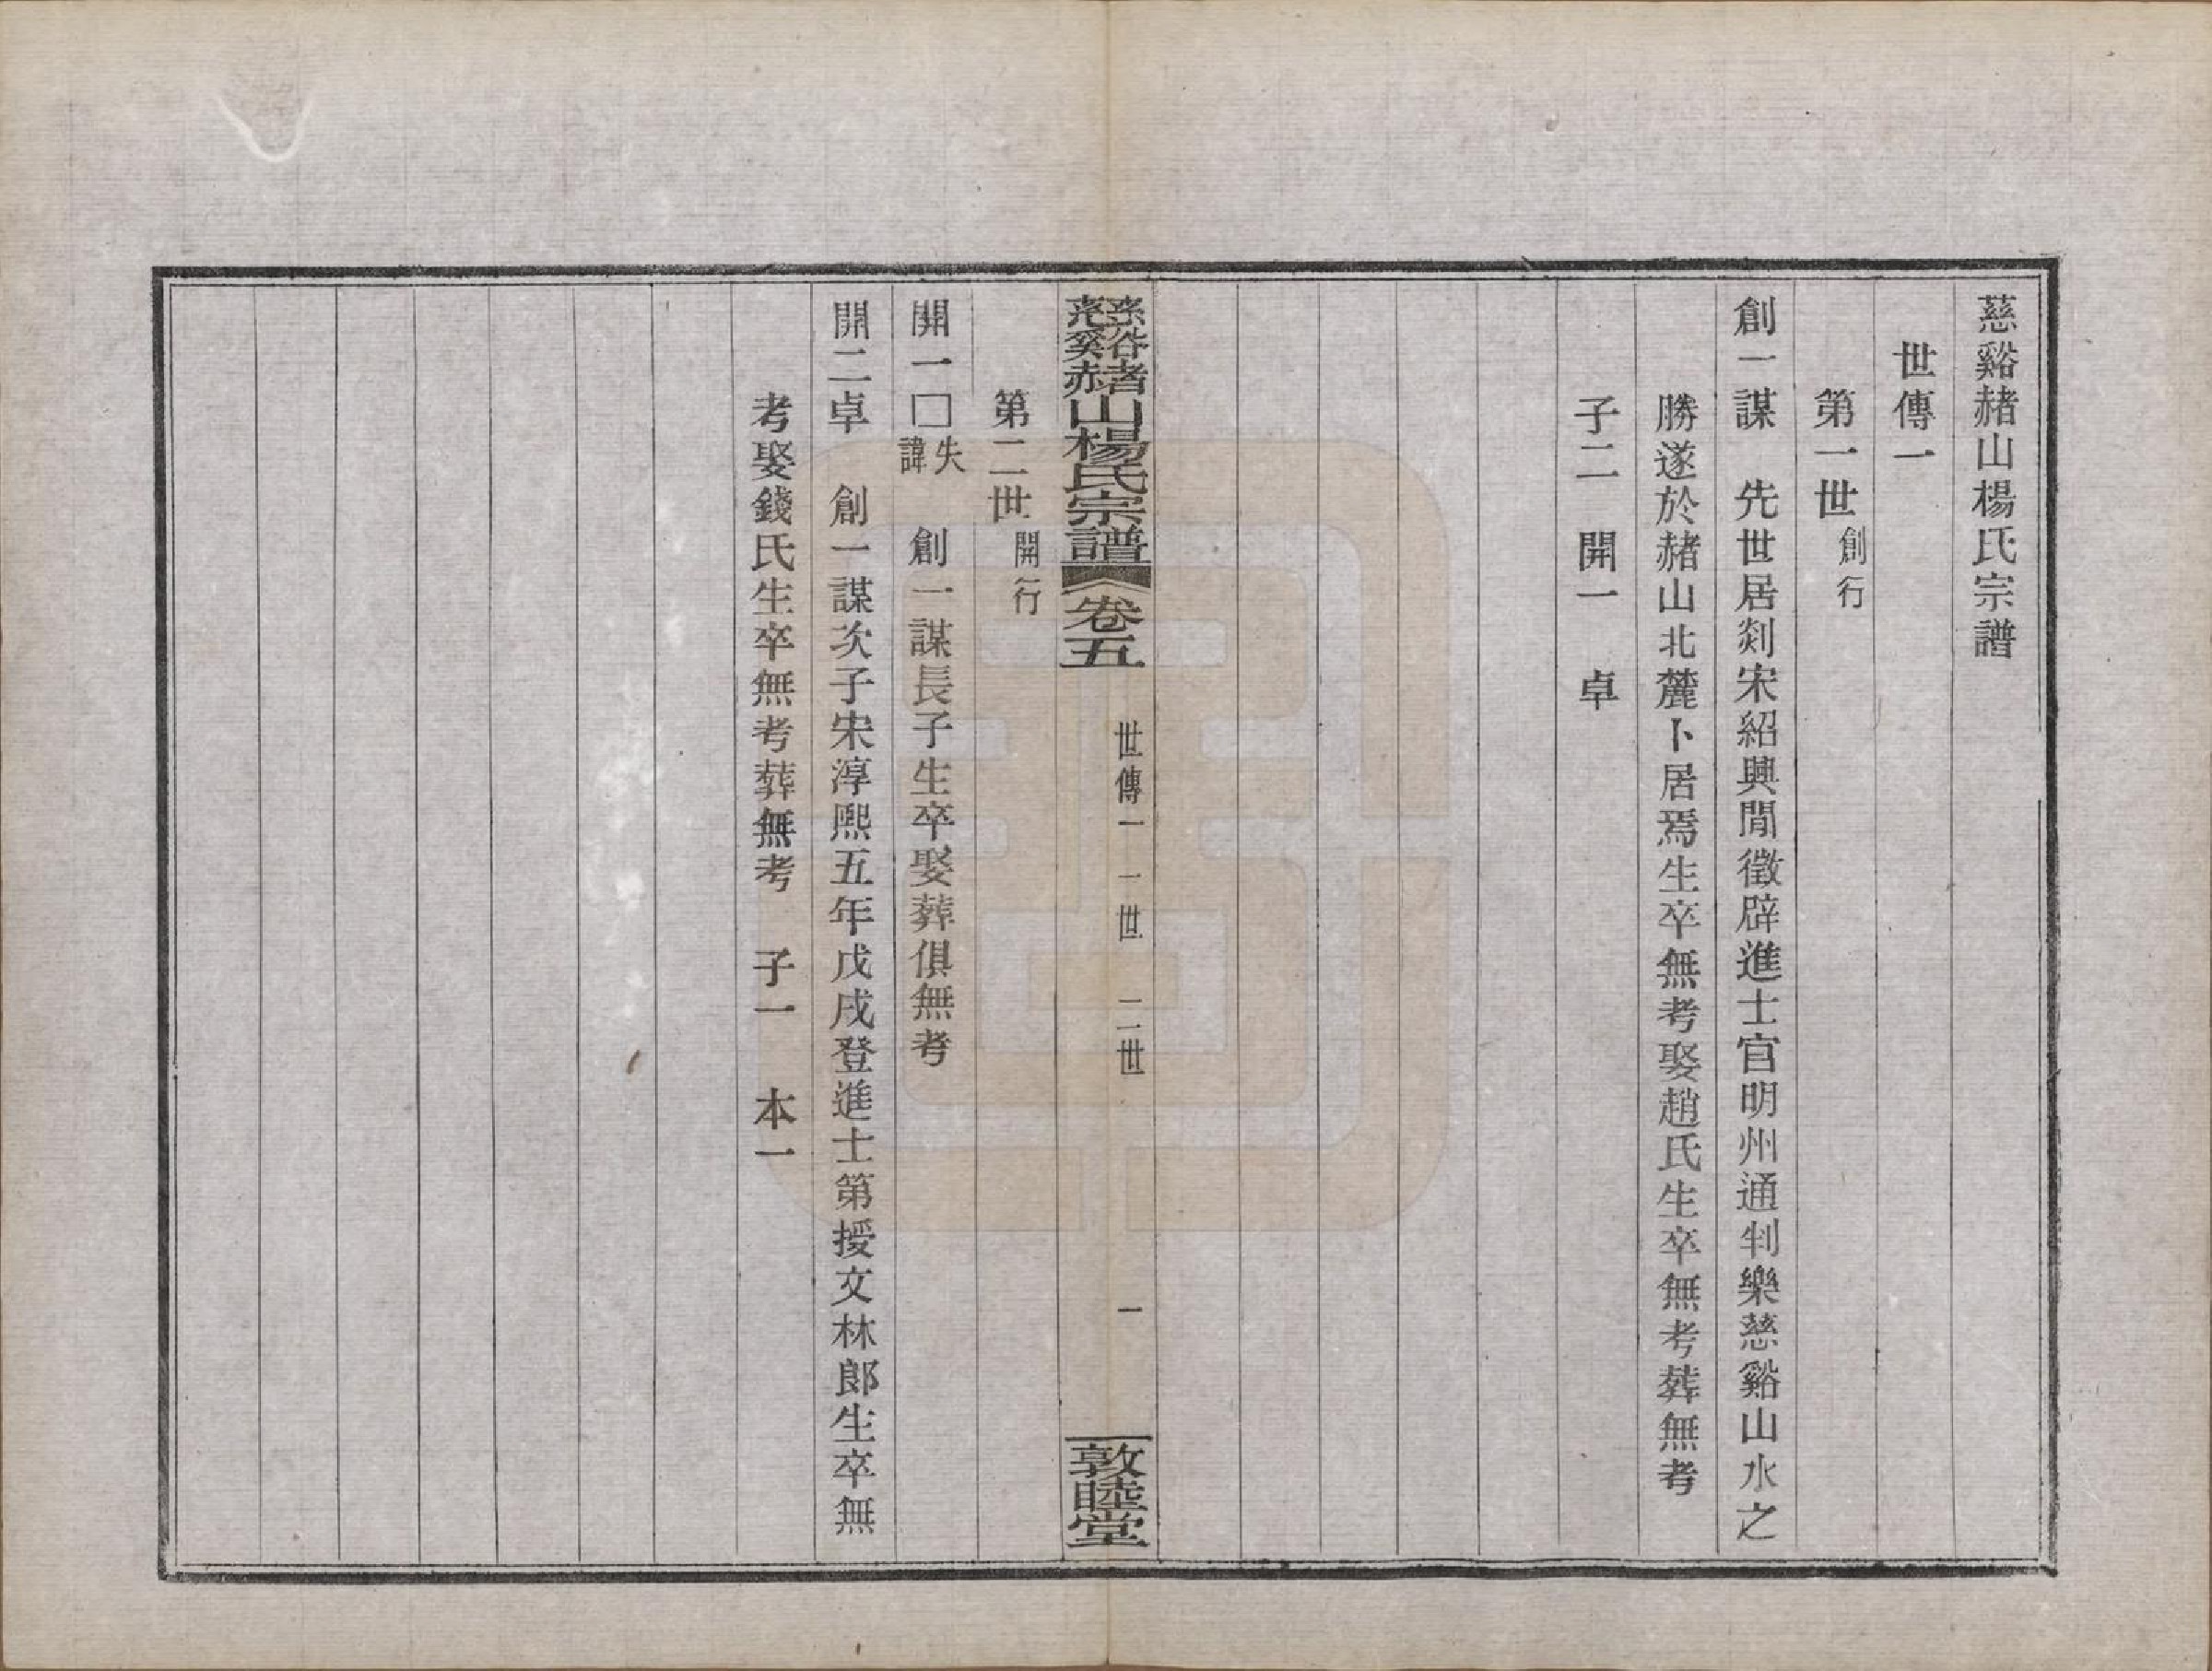 慈谿赭山楊氏宗譜
世傳一
第一世創行
創一謀　先世居剡宋紹興閒徵辟進士官明州通判樂慈谿山水之
勝遂於赭山北麓卜居焉生卒無考娶趙氏生卒無考葬無考
子二　開一　卓
慈谿赭山楊氏宗譜　卷五　世傳一　一世　二世　一　敦睦堂
第二世開行
開一□失諱　創一謀長子生卒娶葬俱無考
開二卓　創一謀次子宋淳熙五年戊戌登進士第授文林郎生卒無
考娶錢氏生卒無考葬無考　子一　本一